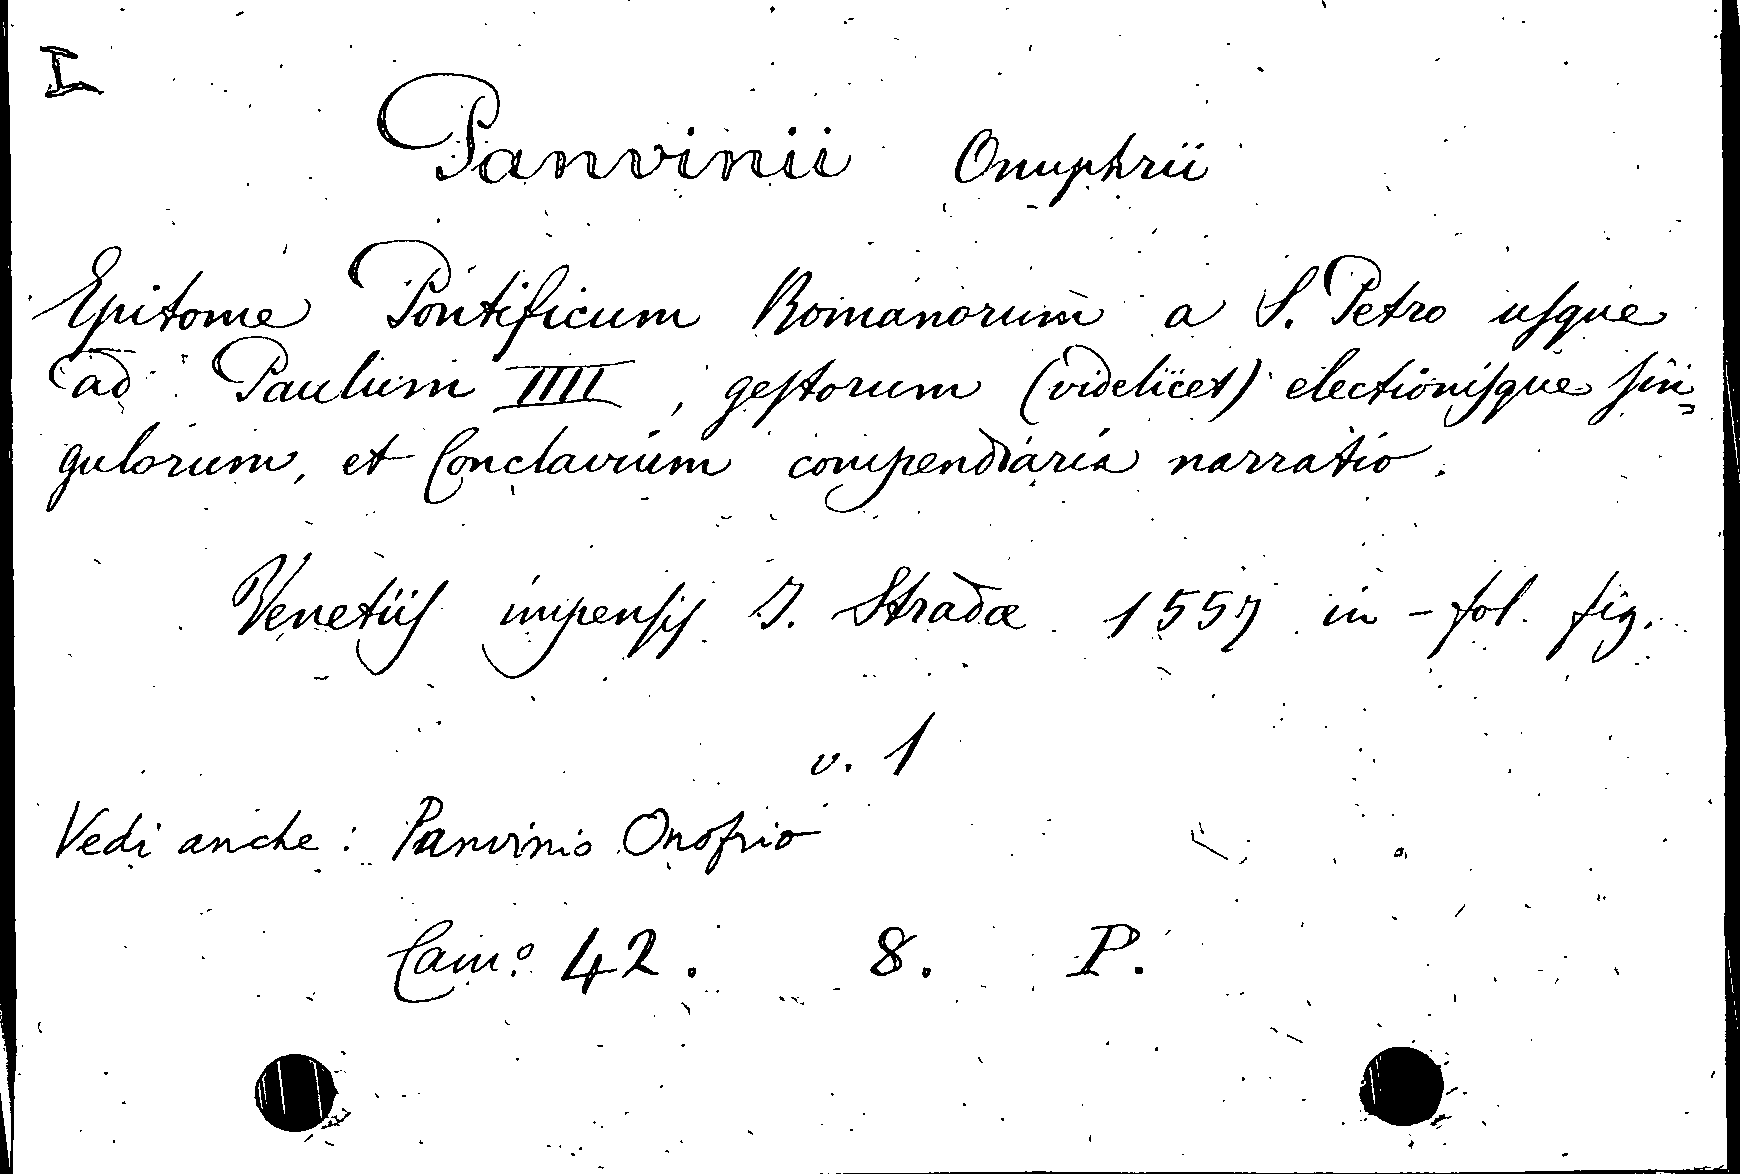 I
Panvinii Onuphrii
Epitome Pontificum Romanorum a S. Petro usque
ad Paulum IIII, gestorum (videlicet) electionisque sin=
gulorum, et Conclavium compendiaria narratio.
Venetiis impensis J. Stradæ 1557 in-fol. fig.
v. 1
Vedi anche: Panvinio Onofrio
Cam.º 42. 8. P.